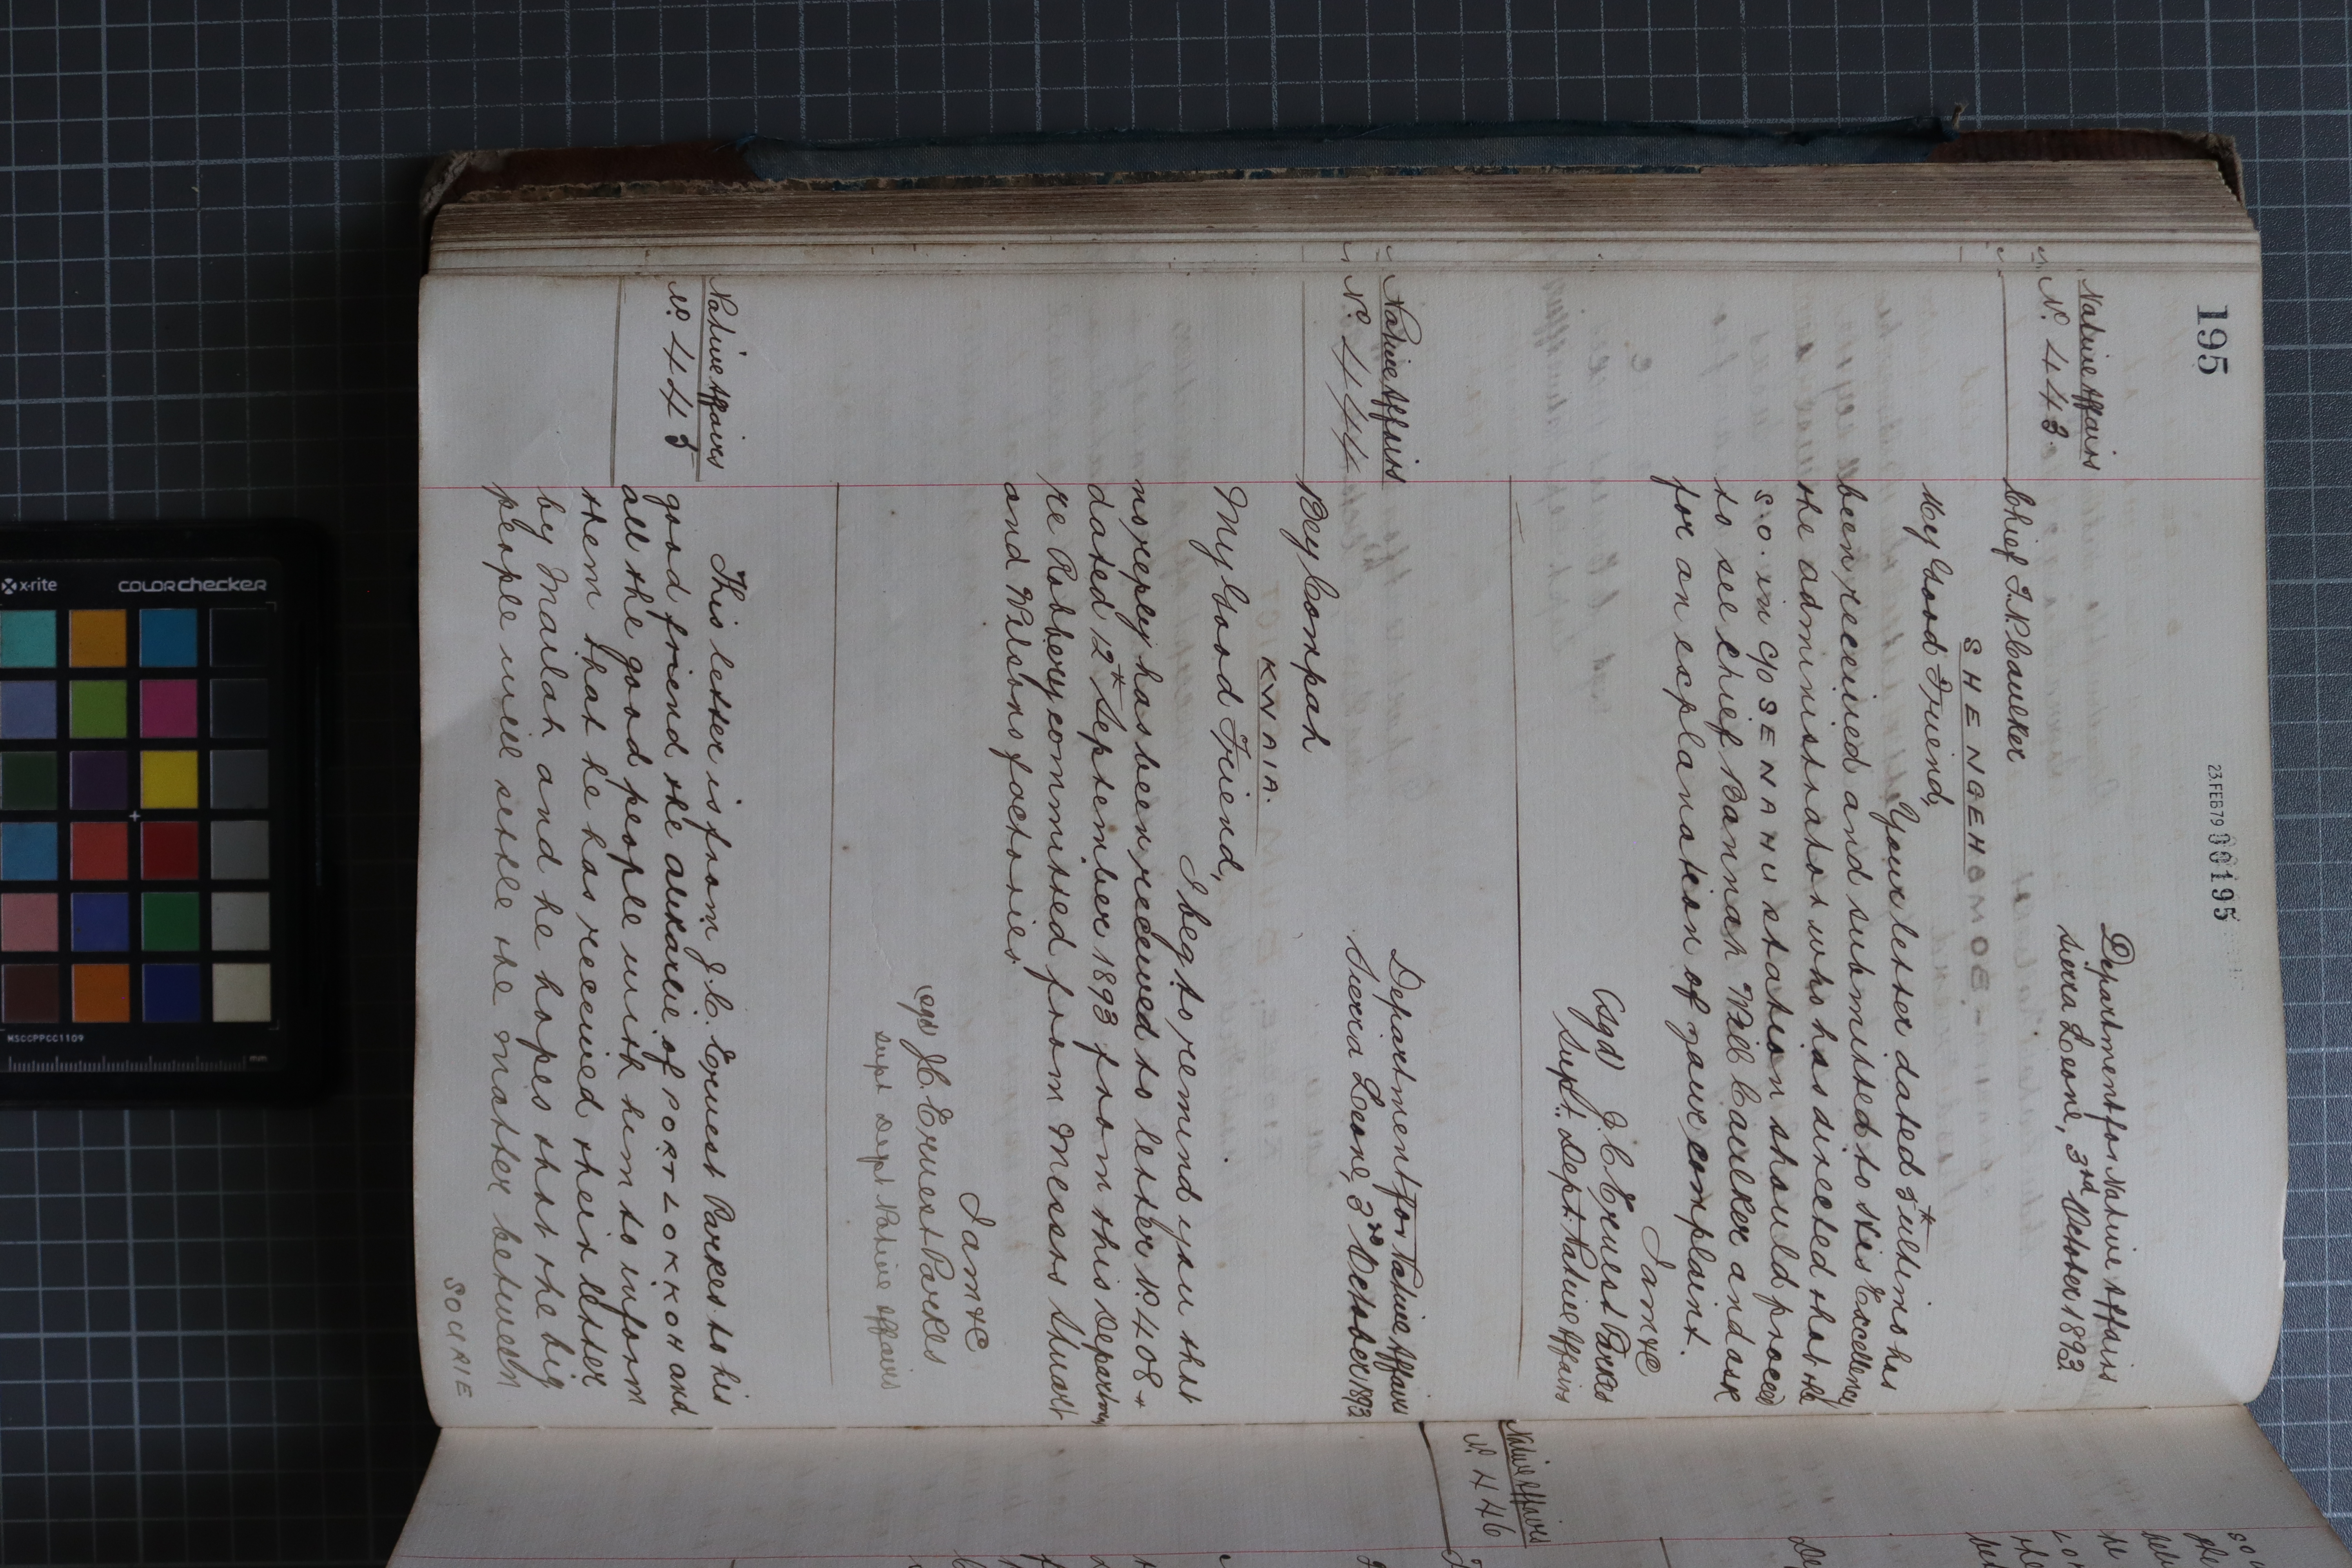 195
23.FEB79 00195
Native Affairs
No. 443
Department for Native Affairs
Sierra Leone, 3rd October 1893
Chief T. N. Caulker
SHENGEH
My Good Friend,
Your letter dated 5th ultimo has
been received and submitted to His Excellency
the administrator who has directed that the
s.o. in c/o SENAHU station should proceed
to see chief Bannah Will Caulker and ask
for an explanation of your complaint.
I am &c
(sgd) J. C. Ernest Parkes
Supt. Dept. Native Affairs
Native Affairs
No. 444
Department for Native Affairs
Sierra Leone, 3rd October 1893
Bey Compah
KWAIA.
My Good Friend,
I beg to remind you that
no reply has been received to letter No. 408
dated 12th September 1893 from this Department
re Robbery committed from Messrs Stuart
and Wilsons factories
I am &c
(sgd) J. C. Ernest Parkes
Supt Dept Native Affairs
Native Affairs
No. 445
This letter is from J. C. Ernest Parkes to his
good friend the alikarlie of PORT LOKKOH and
all the good people with him to inform
them that he has received their letter
by Mailah and he hopes that the big
people will settle the matter between
SOURIE
Native Affairs
No. 446
x-rite
COLORchecker
MSCCPPCC1109
mm